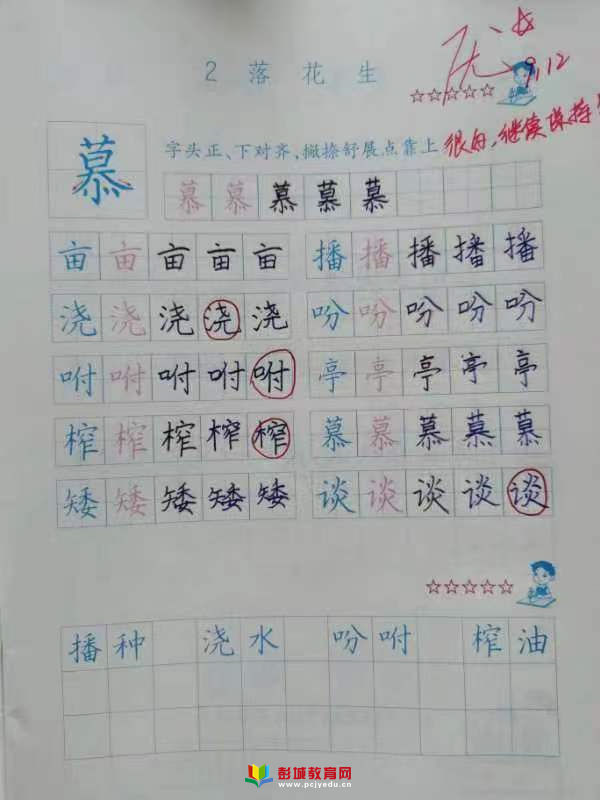 2 落花生
优
9.12
慕
字头正、下对齐，撇捺舒展点靠上
很好，继续保持
慕慕慕慕慕
亩亩亩亩亩 播播播播播
浇浇浇浇浇 吩吩吩吩吩
咐咐咐咐咐 亭亭亭亭亭
榨榨榨榨榨 慕慕慕慕慕
矮矮矮矮矮 谈谈谈谈谈
播种 浇水 吩咐 榨油
彭城教育网
www.pcjyedu.cn